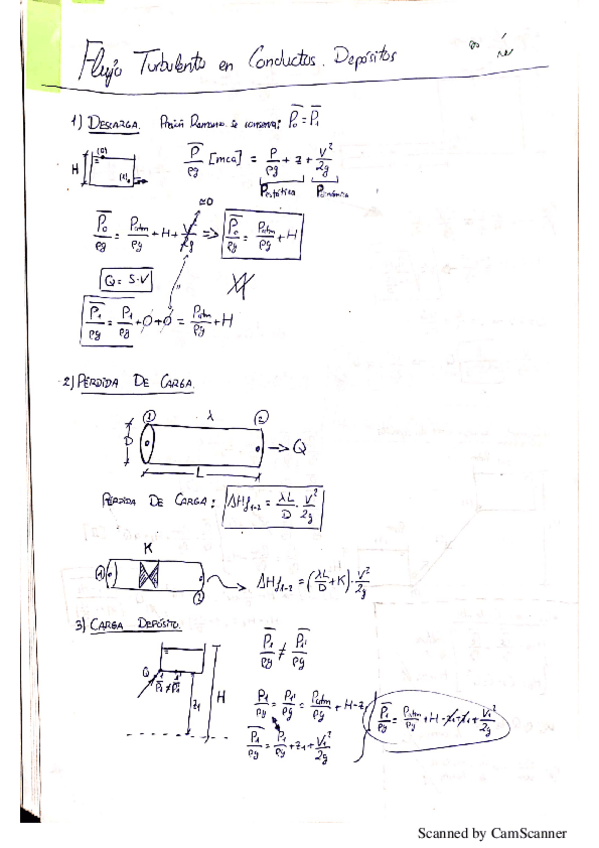 Flujo Turbulento en Conductos. Depósitos
1) DESCARGA. Presión Remanso se conserva: P̅₀ = P̅₁
H (0) (1)
P̅/ρg [mca] = P/ρg + z + V²/2g
Pestática Pdinámica
P̅₀/ρg = Patm/ρg + H + V²/2g ≈0 => P̅₀/ρg = Patm/ρg + H
Q = S·V
P̅₁/ρg = P₁/ρg + 0 + 0 = Patm/ρg + H
2) PÉRDIDA DE CARGA.
1 λ 2
D → Q
L
PÉRDIDA DE CARGA: ΔHf1-2 = λL/D · V²/2g
K
1 2 ΔHf1-2 = (λL/D + K) · V²/2g
3) CARGA DEPÓSITO.
P̅₁/ρg ≠ P̅₁'/ρg
Q 1 1' H z₁
P₁/ρg = P₁'/ρg = Patm/ρg + H - z₁
P̅₁/ρg = P₁/ρg + z₁ + V₁²/2g
P̅₁/ρg = Patm/ρg + H - z₁ + z₁ + V₁²/2g
Scanned by CamScanner